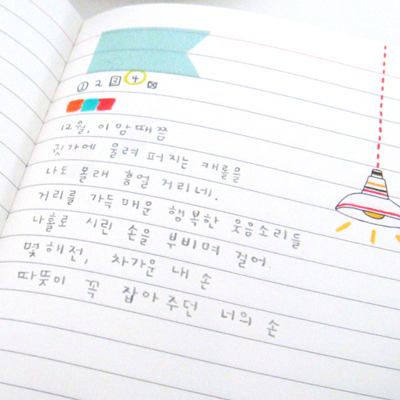 ① 2 3 4
12월, 이맘때쯤
귓가에 울려 퍼지는 캐롤을
나도 몰래 흥얼 거리네.
거리를 가득 매운 행복한 웃음소리들
나홀로 시린 손을 부비며 걸어.
몇해전, 차가운 내 손
따뜻이 꼭 잡아주던 너의 손